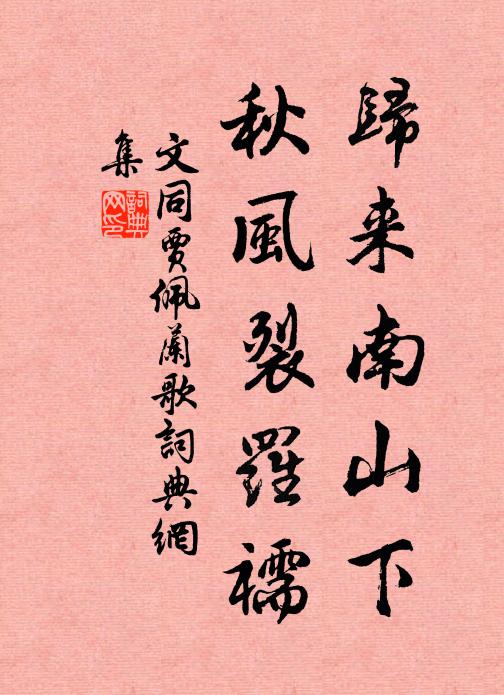 歸来南山下
秋風裂羅襦
文同賈佩蘭歌詞典網
集
詞典
网印